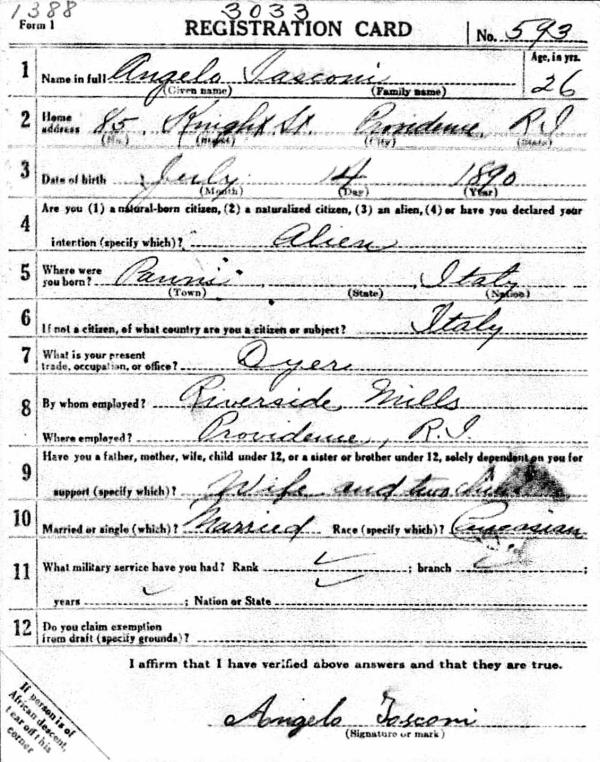 1388 3033
Form 1 REGISTRATION CARD No. 593
1 Name in full Angelo Tosconi Age, in yrs. 26
(Given name) (Family name)
2 Home address 85 Knight St. Providence, R I
(No.) (Street) (City) (State)
3 Date of birth July 14 1890
(Month) (Day) (Year)
4 Are you (1) a natural-born citizen, (2) a naturalized citizen, (3) an alien, (4) or have you declared your
intention (specify which)? Alien
5 Where were you born? Panni Italy
(Town) (State) (Nation)
6 If not a citizen, of what country are you a citizen or subject? Italy
7 What is your present trade, occupation, or office? Dyer
8 By whom employed? Riverside Mills
Where employed? Providence, R.I.
9 Have you a father, mother, wife, child under 12, or a sister or brother under 12, solely dependent on you for
support (specify which)? Wife and two
10 Married or single (which)? Married Race (specify which)? Caucasian
11 What military service have you had? Rank ; branch ;
years ; Nation or State
12 Do you claim exemption
from draft (specify grounds)?
I affirm that I have verified above answers and that they are true.
If person is of
African descent,
tear off this
corner
Angelo Tosconi
(Signature or mark)